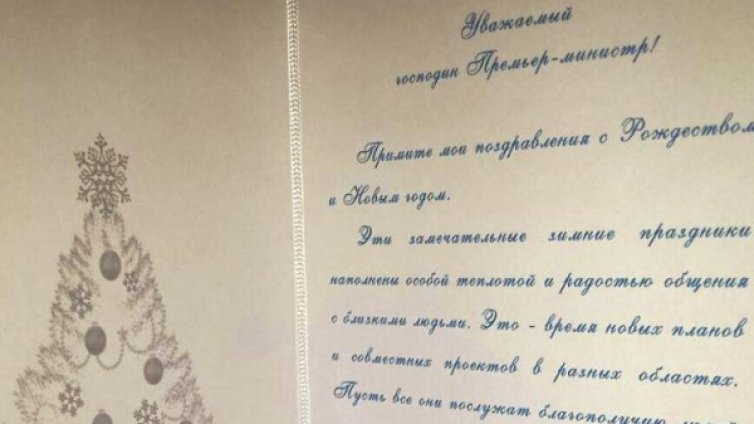 Уважаемый
господин Премьер-министр!
Примите мои поздравления с Рождеством
и Новым годом.
Эти замечательные зимние праздники
наполнены особой теплотой и радостью общения
с близкими людьми. Это - время новых планов
и совместных проектов в разных областях.
Пусть все они послужат благополучию